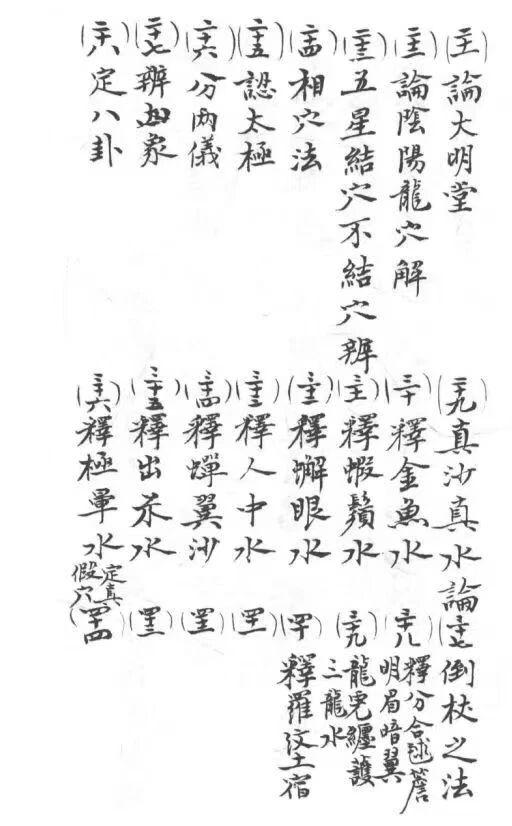 (二十一)論大明堂
(二十二)論陰陽龍穴解
(二十三)五星結穴不結穴辨
(二十四)相穴法
(二十五)認太極
(二十六)分兩儀
(二十七)辨四象
(二十八)定八卦
(二十九)真沙真水論
(三十)釋金魚水
(三十一)釋蝦鬚水
(三十二)釋蠏眼水
(三十三)釋人中水
(三十四)釋蟬翼沙
(三十五)釋出水
(三十六)釋極暈水定真
假穴
(三十七)倒杖之法
(三十八)釋分合毬簷
明眉暗翼
(三十九)龍虎纏護
三龍水
(四十)釋羅紋土宿
(四十一)
(四十二)
(四十三)
(四十四)